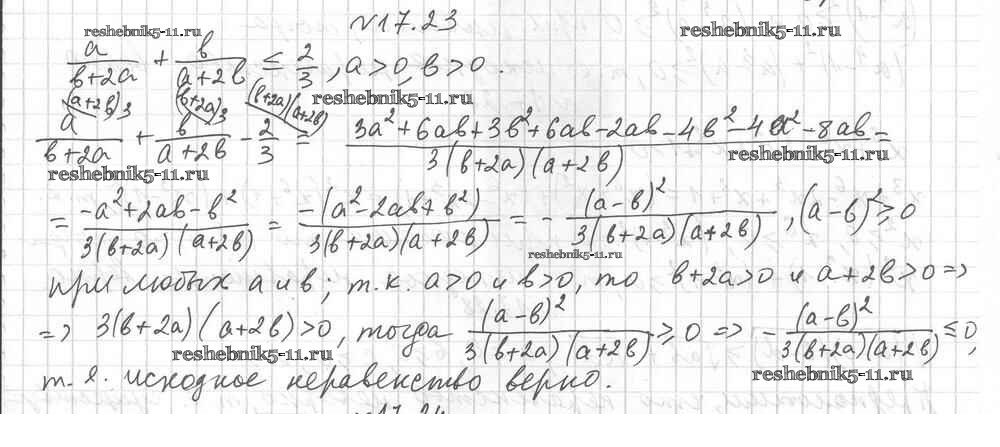 №17.23
reshebnik5-11.ru
reshebnik5-11.ru
a/(b+2a) + b/(a+2b) ≤ 2/3, a>0, b>0.
reshebnik5-11.ru
a/(b+2a) + b/(a+2b) - 2/3 = (3a²+6ab+3b²+6ab-2ab-4b²-4a²-8ab)/(3(b+2a)(a+2b)) =
(a+2b)3 (b+2a)3 (b+2a)(a+2b)
reshebnik5-11.ru
reshebnik5-11.ru
= (-a²+2ab-b²)/(3(b+2a)(a+2b)) = (-(a²-2ab+b²))/(3(b+2a)(a+2b)) = - (a-b)²/(3(b+2a)(a+2b)), (a-b)²≥0
reshebnik5-11.ru
при любых a и b; т.к. a>0 и b>0, то b+2a>0 и a+2b>0 =>
=> 3(b+2a)(a+2b)>0, тогда (a-b)²/(3(b+2a)(a+2b)) ≥ 0 => - (a-b)²/(3(b+2a)(a+2b)) ≤ 0,
reshebnik5-11.ru
reshebnik5-11.ru
т.е. исходное неравенство верно.